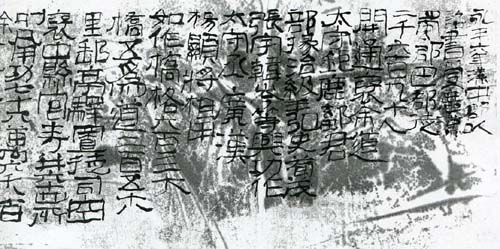 永平六年漢中郡以
詔書受廣漢
蜀郡巴郡徒
二千六百九十人
開通褒余道
太守鉅鹿鄐君
部掾治級王弘史荀茂
張宇韓岑弟典功作
太守丞廣漢
楊顯將相用
始作橋格六百三
橋五為道二百五十八
里郵亭驛置徒司空
褒中縣官寺并六十四所
凡用功七十六萬六千八百
餘